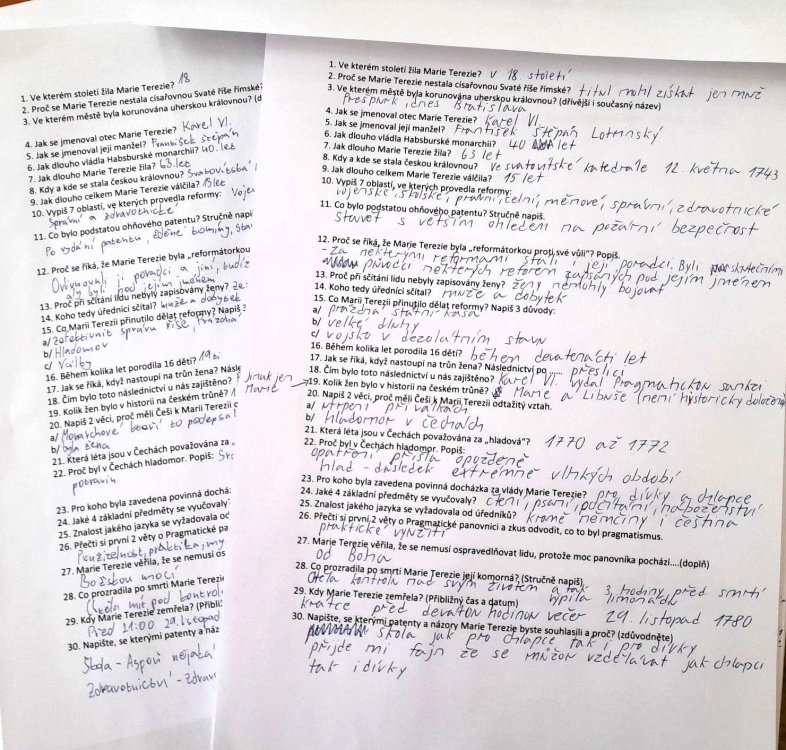 1. Ve kterém století žila Marie Terezie? 18
2. Proč se Marie Terezie nestala císařovnou Svaté říše římské?
3. Ve kterém městě byla korunována uherskou královnou? (d
4. Jak se jmenoval otec Marie Terezie? Karel VI.
5. Jak se jmenoval její manžel? František štěpán
6. Jak dlouho vládla Habsburské monarchii? 40. let
7. Jak dlouho Marie Terezie žila? 63 let
8. Kdy a kde se stala českou královnou? Svatovítská
9. Jak dlouho celkem Marie Terezie válčila? 15 let
10. Vypiš 7 oblastí, ve kterých provedla reformy: Voje
Správní a zdravotnické
11. Co bylo podstatou ohňového patentu? Stručně napi
Po vydání patentu, zděné komíny, sta
12. Proč se říká, že Marie Terezie byla „reformátorkou
Ovlivňovali ji poradci a jiní,
aby byli pod jejím jménem
13. Proč při sčítání lidu nebyly zapisovány ženy? že:
14. Koho tedy úředníci sčítal? muže a dobytek
15. Co Marii Terezii přinutilo dělat reformy? Napiš 3
a/ zefektivnit správu říše, Prázdná
b/ Hladomor
c/ Války
16. Během kolika let porodila 16 dětí? 19
17. Jak se říká, když nastoupí na trůn žena? Násle
18. Čím bylo toto následnictví u nás zajištěno?
19. Kolik žen bylo v historii na českém trůně? 1
20. Napiš 2 věci, proč měli Češi k Marii Terezii o
a/ Monarchové to podepsal
b/ byla žena
21. Která léta jsou v Čechách považována za „
22. Proč byl v Čechách hladomor. Popiš: Sra
potravin
23. Pro koho byla zavedena povinná dochá
24. Jaké 4 základní předměty se vyučovaly
25. Znalost jakého jazyka se vyžadovala od
26. Přečti si první 2 věty o Pragmatické pa
Použitelnost, praktika, my
27. Marie Terezie věřila, že se nemusí os
Božskou mocí
28. Co prozradila po smrti Marie Terezi
Chtěla mít pod kontrol
29. Kdy Marie Terezie zemřela? (Přibliž
Před 21:00 29. listopad
30. Napište, se kterými patenty a náz
Škola - Aspoň nějaká
Zdravotnictví - zdrav
1. Ve kterém století žila Marie Terezie? v 18. století
2. Proč se Marie Terezie nestala císařovnou Svaté říše římské? titul mohl získat jen muž
3. Ve kterém městě byla korunována uherskou královnou? (dřívější i současný název)
Prešpurk dnes Bratislava
4. Jak se jmenoval otec Marie Terezie? Karel VI.
5. Jak se jmenoval její manžel? František Štěpán Lotrinský
6. Jak dlouho vládla Habsburské monarchii? 40 let
7. Jak dlouho Marie Terezie žila? 63 let
8. Kdy a kde se stala českou královnou? ve svatovítské katedrále 12. května 1743
9. Jak dlouho celkem Marie Terezie válčila? 15 let
10. Vypiš 7 oblastí, ve kterých provedla reformy:
vojenské, školské, právní, celní, měnové, správní, zdravotnické
11. Co bylo podstatou ohňového patentu? Stručně napiš.
stavět s větším ohledem na požární bezpečnost
12. Proč se říká, že Marie Terezie byla „reformátorkou proti své vůli"? Popiš.
- Za některými reformami stáli její poradci. Byli skutečnými
původci některých reforem zapsaných pod jejím jménem
13. Proč při sčítání lidu nebyly zapisovány ženy? ženy nemohly bojovat
14. Koho tedy úředníci sčítal? muže a dobytek
15. Co Marii Terezii přinutilo dělat reformy? Napiš 3 důvody:
a/ prázdná státní kasa
b/ velké dluhy
c/ vojsko v dezolátním stavu
16. Během kolika let porodila 16 dětí? během devatenácti let
17. Jak se říká, když nastoupí na trůn žena? Následnictví po.... přeslici
18. Čím bylo toto následnictví u nás zajištěno? Karel VI. vydal Pragmatickou sankci
Jinak jen Marie
19. Kolik žen bylo v historii na českém trůně? Marie a Libuše (není historicky doložena
20. Napiš 2 věci, proč měli Češi k Marii Terezii odtažitý vztah.
a/ utrpení při válkách
b/ hladomor v Čechách
21. Která léta jsou v Čechách považována za „hladová"? 1770 až 1772
22. Proč byl v Čechách hladomor. Popiš:
opatření přišla opožděně
hlad - důsledek extrémně vlhkých období
23. Pro koho byla zavedena povinná docházka za vlády Marie Terezie? pro dívky a chlapce
24. Jaké 4 základní předměty se vyučovaly? čtení, psaní, počítání, náboženství
25. Znalost jakého jazyka se vyžadovala od úředníků? kromě němčiny i čeština
26. Přečti si první 2 věty o Pragmatické panovnici a zkus odvodit, co to byl pragmatismus.
praktické využití
27. Marie Terezie věřila, že se nemusí ospravedlňovat lidu, protože moc panovníka pochází....(doplň)
od Boha
28. Co prozradila po smrti Marie Terezie její komorná? (Stručně napiš)
chtěla kontrolu nad svým životem a tak 3 hodiny před smrtí
vypila limonádu
29. Kdy Marie Terezie zemřela? (Přibližný čas a datum)
krátce před devátou hodinou večer 29. listopad 1780
30. Napište, se kterými patenty a názory Marie Terezie byste souhlasili a proč? (zdůvodněte)
škola jak pro chlapce tak i pro dívky
přijde mi fajn že se můžou vzdělávat jak chlapci
tak i dívky